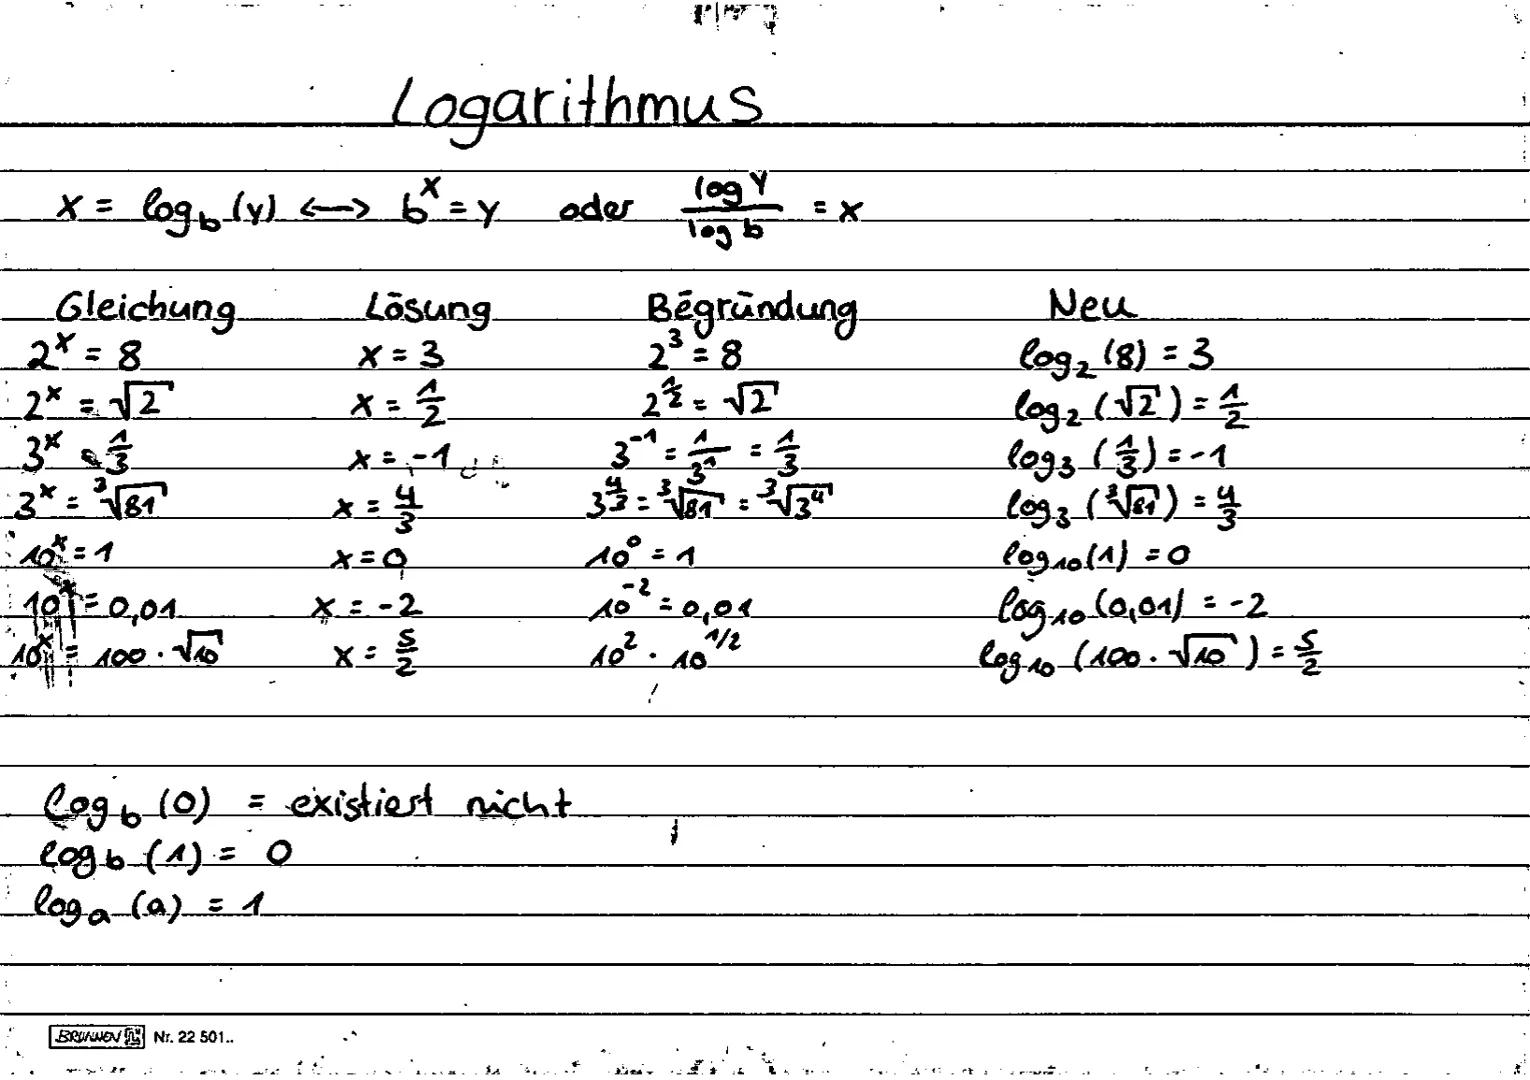 Logarithmus
x = log_b (y) <—> b^x = y oder log y / log b = x
Gleichung Lösung Begründung Neu
2^x = 8 x = 3 2^3 = 8 log_2 (8) = 3
2^x = √2 x = 1/2 2^(1/2) = √2 log_2 (√2) = 1/2
3^x = 1/3 x = -1 3^-1 = 1/3^1 = 1/3 log_3 (1/3) = -1
3^x = ³√81 x = 4/3 3^(4/3) = ³√81 = ³√3^4 log_3 (³√81) = 4/3
10^x = 1 x = 0 10^0 = 1 log_10 (1) = 0
10^x = 0,01 x = -2 10^-2 = 0,01 log_10 (0,01) = -2
10^x = 100 · √10 x = 5/2 10^2 · 10^1/2 log_10 (100 · √10) = 5/2
log_b (0) = existiert nicht
log_b (1) = 0
log_a (a) = 1
BRUNNEN Nr. 22 501..